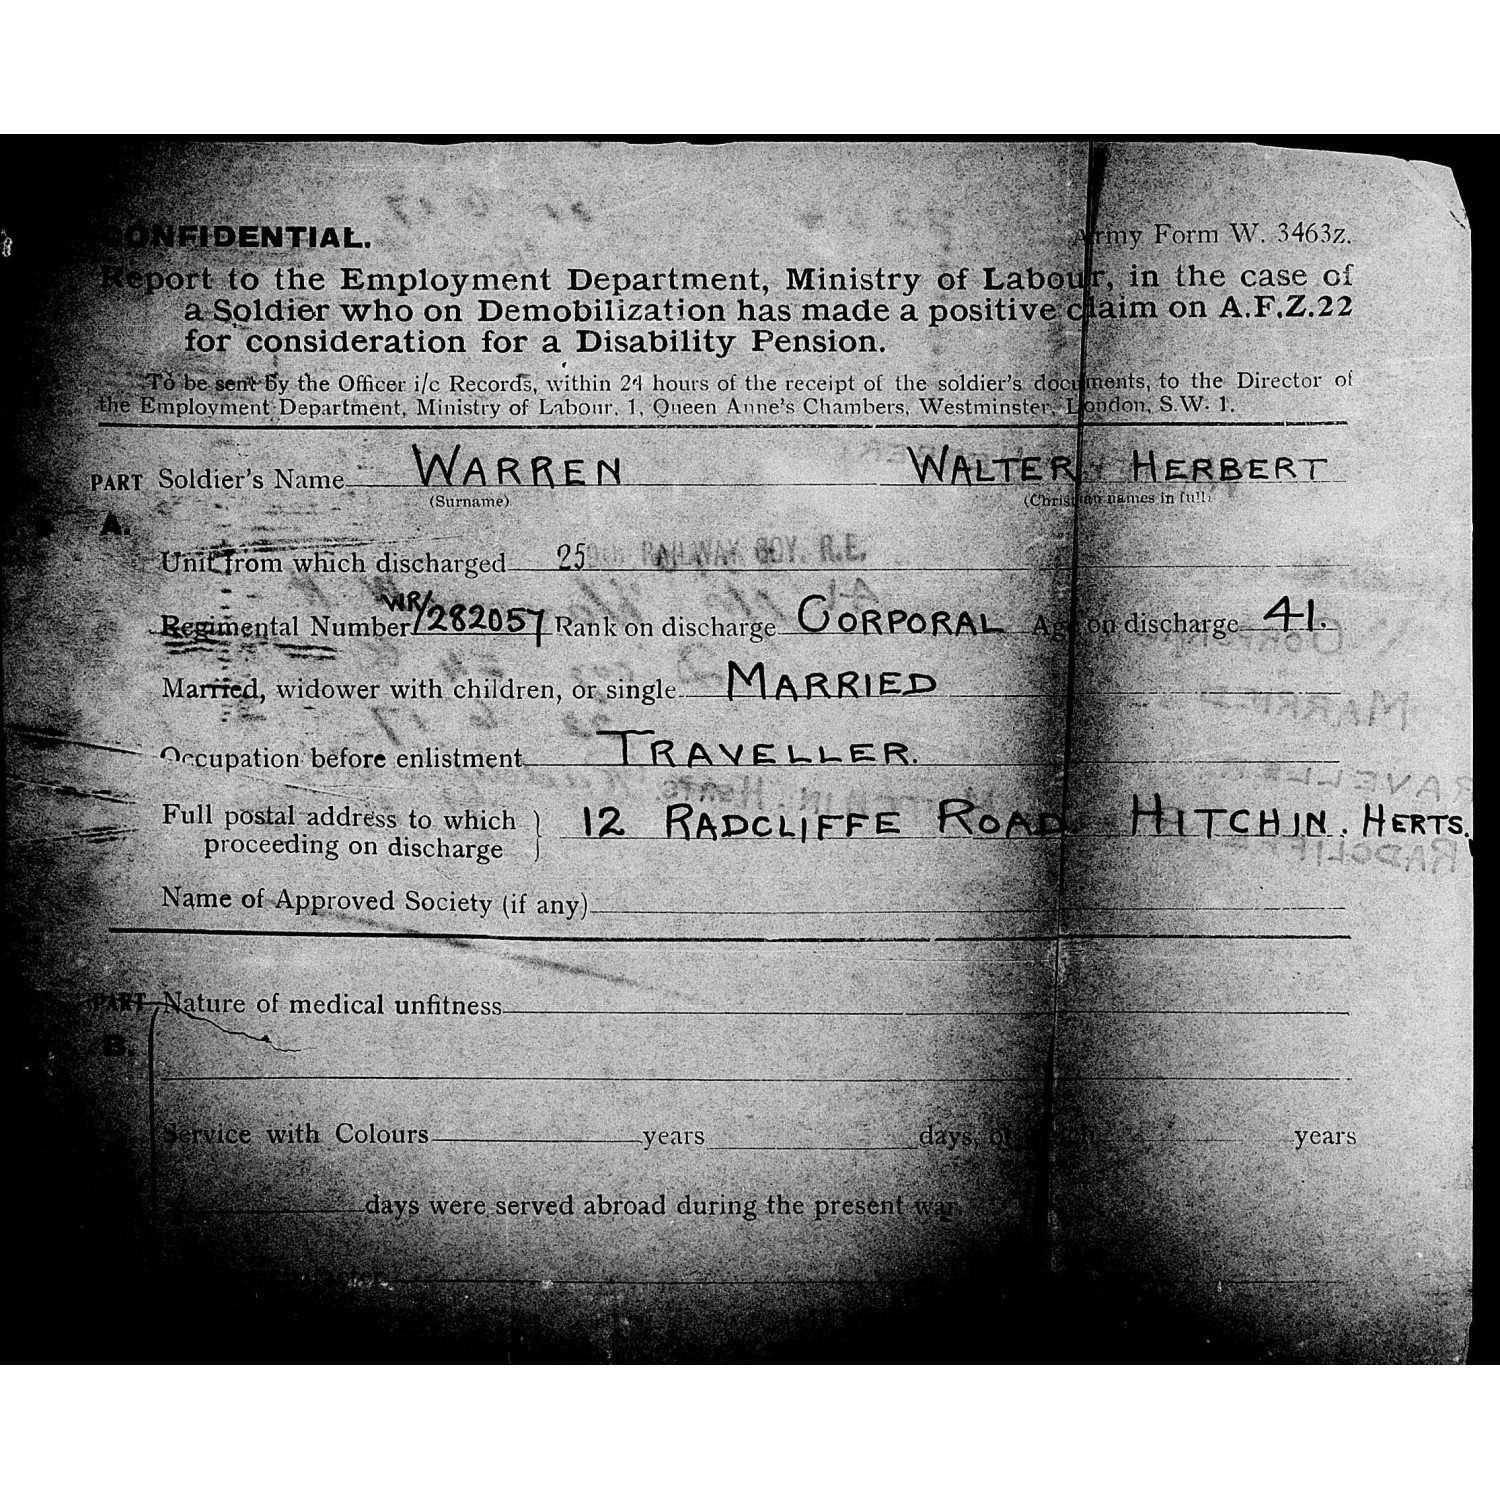 CONFIDENTIAL. Army Form W. 3463z.
Report to the Employment Department, Ministry of Labour, in the case of
a Soldier who on Demobilization has made a positive claim on A.F.Z.22
for consideration for a Disability Pension.
To be sent by the Officer i/c Records, within 24 hours of the receipt of the soldier's documents, to the Director of
the Employment Department, Ministry of Labour, 1, Queen Anne's Chambers, Westminster, London, S.W. 1.
PART Soldier's Name WARREN WALTER HERBERT
(Surname) (Christian names in full)
A.
Unit from which discharged RAILWAY COY. R.E.
Regimental Number WR/282057 Rank on discharge CORPORAL Age on discharge 41.
Married, widower with children, or single MARRIED
Occupation before enlistment TRAVELLER.
Full postal address to which
proceeding on discharge 12 RADCLIFFE ROAD. HITCHIN. HERTS.
Name of Approved Society (if any)
PART Nature of medical unfitness
B.
Service with Colours years days, of which years
days were served abroad during the present war.